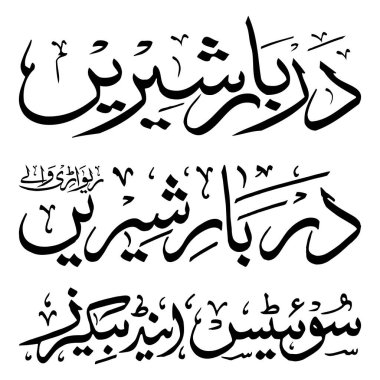 دربار شیریں
ریواڑی والے
دربار شیریں
سوئیٹس اینڈ بیکرز